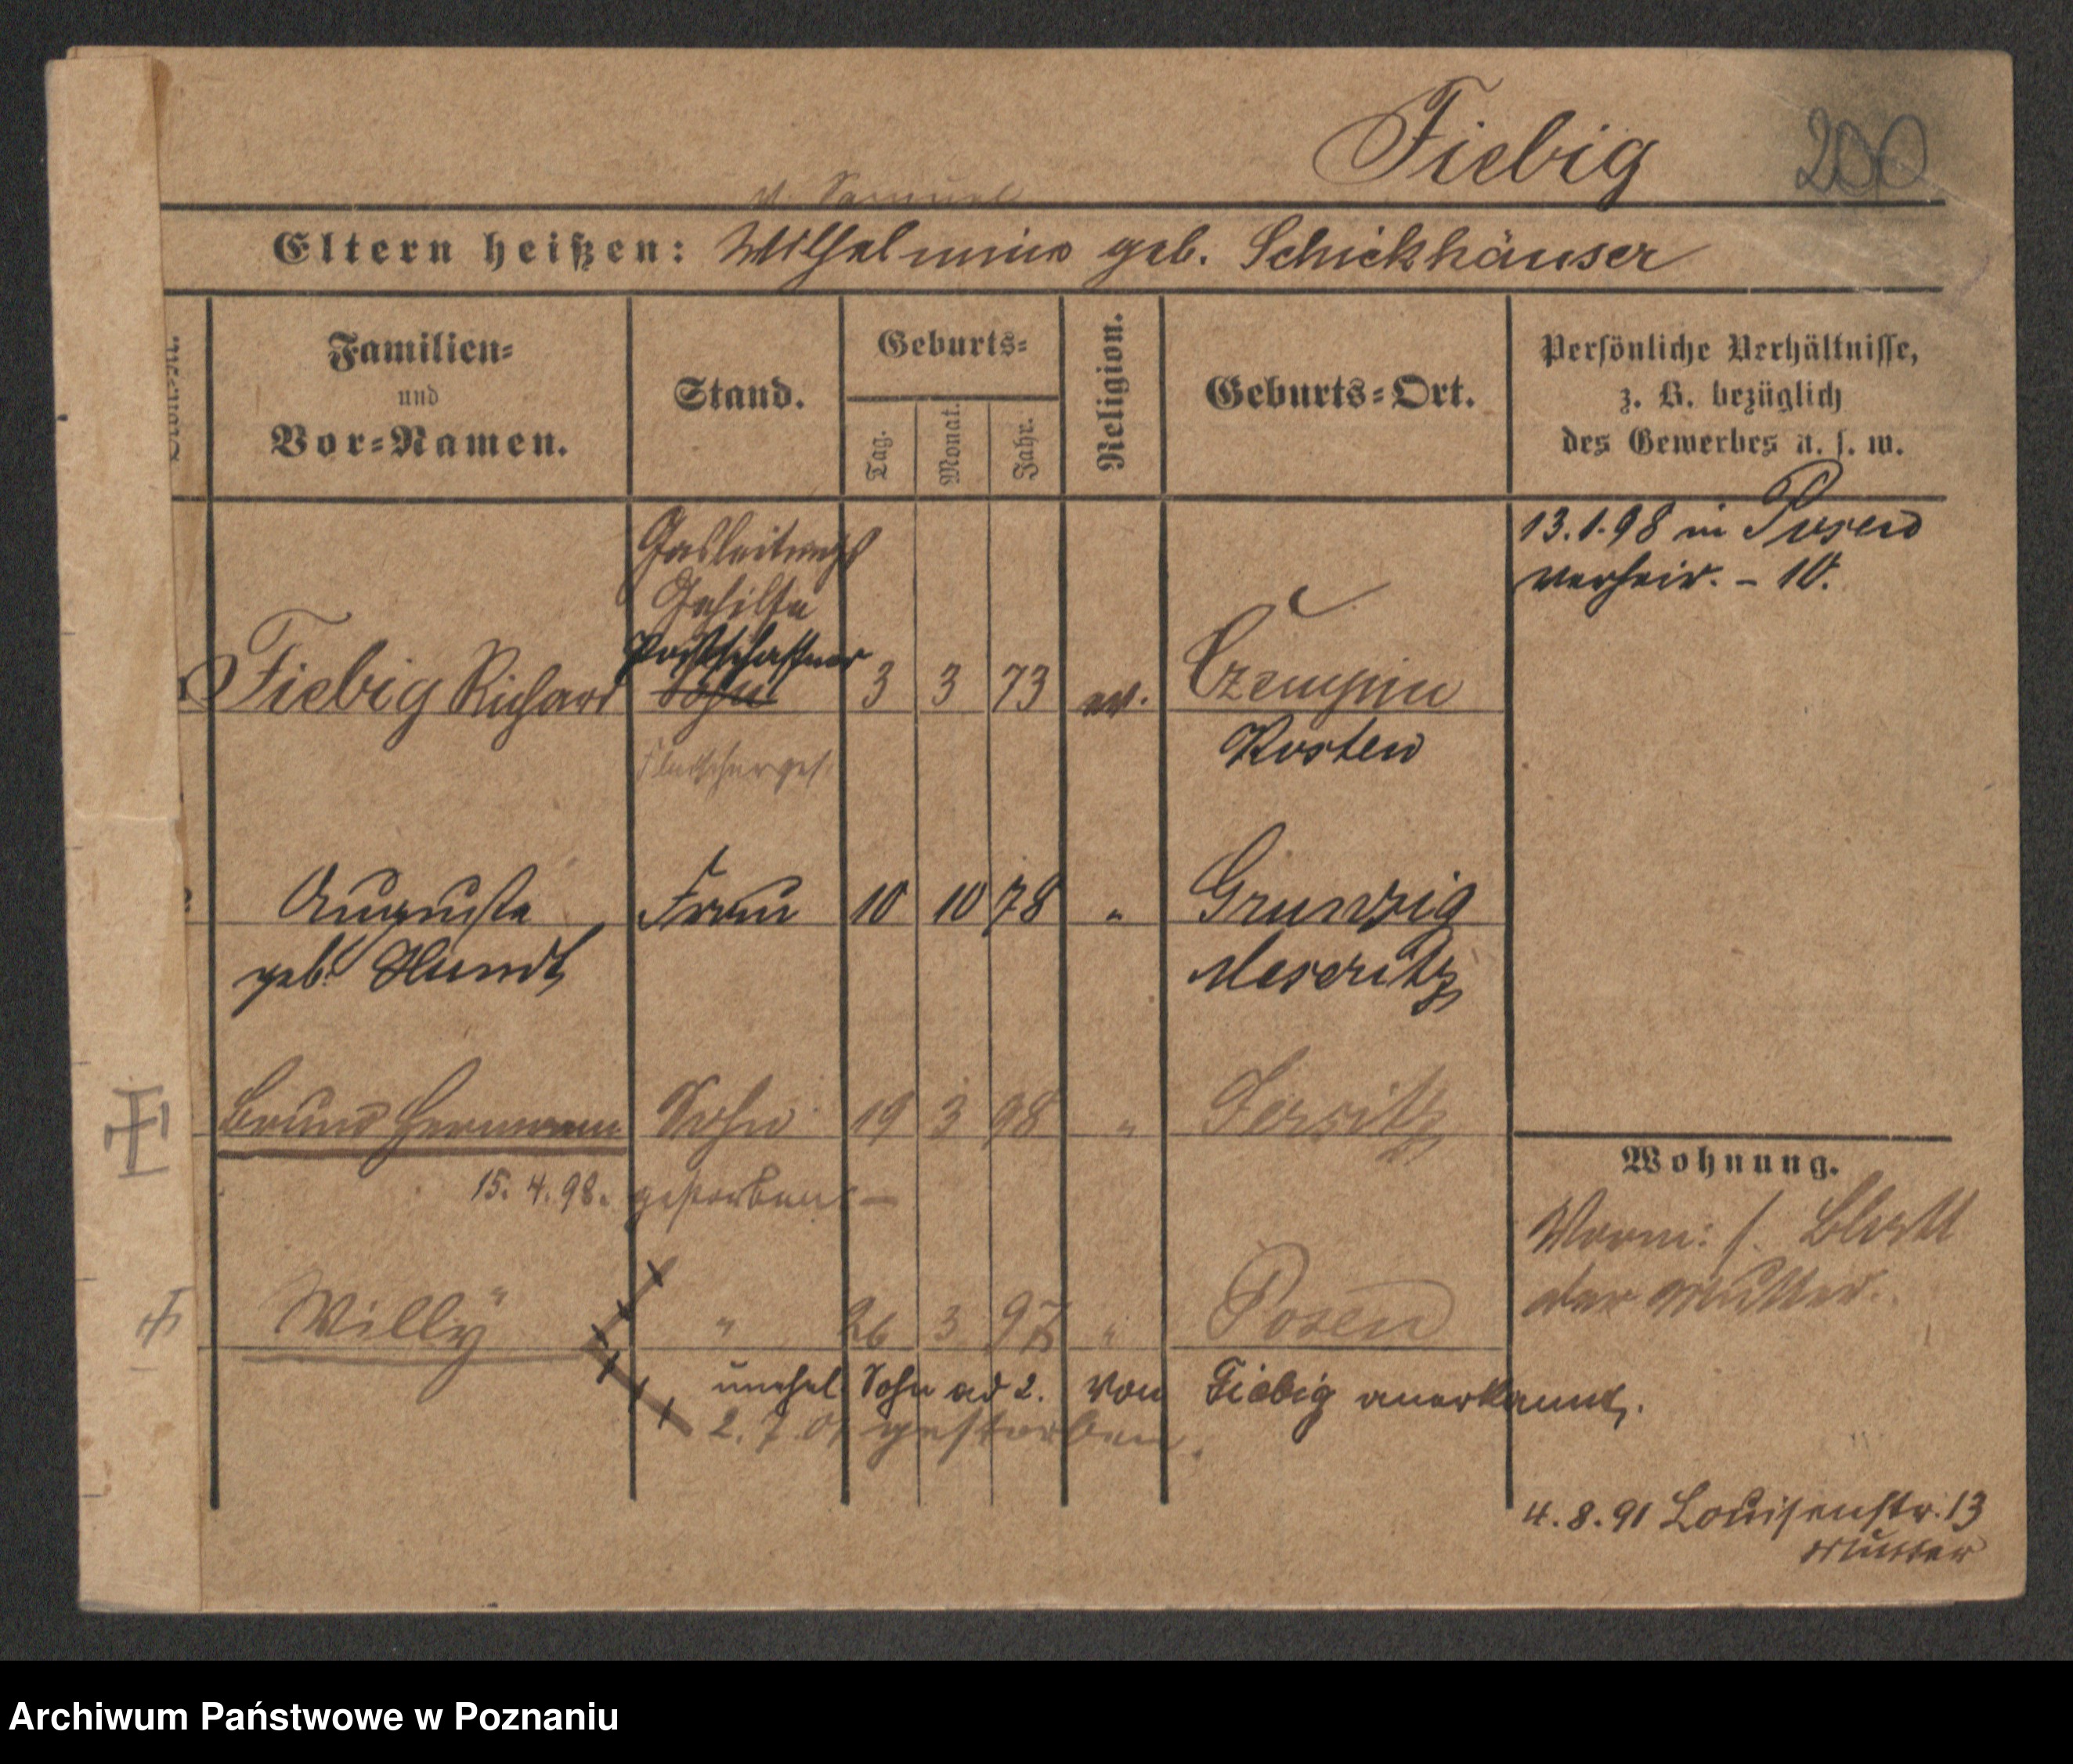 Fiebig 200
v. Samuel
Eltern heißen: Wilhelmine geb. Schickhäuser
Familien-
und
Vor-Namen.
Stand.
Geburts-
Tag.
Monat.
Jahr.
Religion.
Geburts-Ort.
Persönliche Verhältnisse,
z. B. bezüglich
des Gewerbes u. s. w.
13.1.98 in Posen
verheir. - 10.
Gasleitungs
Gehilfe
Postschaffner
Fiebig Richard Sohn 3 3 73 ev. Czempin
Kosten
Auguste Frau 10 10 78 " Grunzig
geb. Hundt Meseritz
Bruno Hermann Sohn 19 3 98 " Jersitz
15. 4. 98. gestorben -
Wohnung.
Vorm: s. Blatt
der Mutter.
Willy " 26 3 97 " Posen
unehel. Sohn ad 2. von Fiebig anerkannt.
2. 7. 01 gestorben.
4. 8. 91 Louisenstr. 13
Mutter
Archiwum Państwowe w Poznaniu